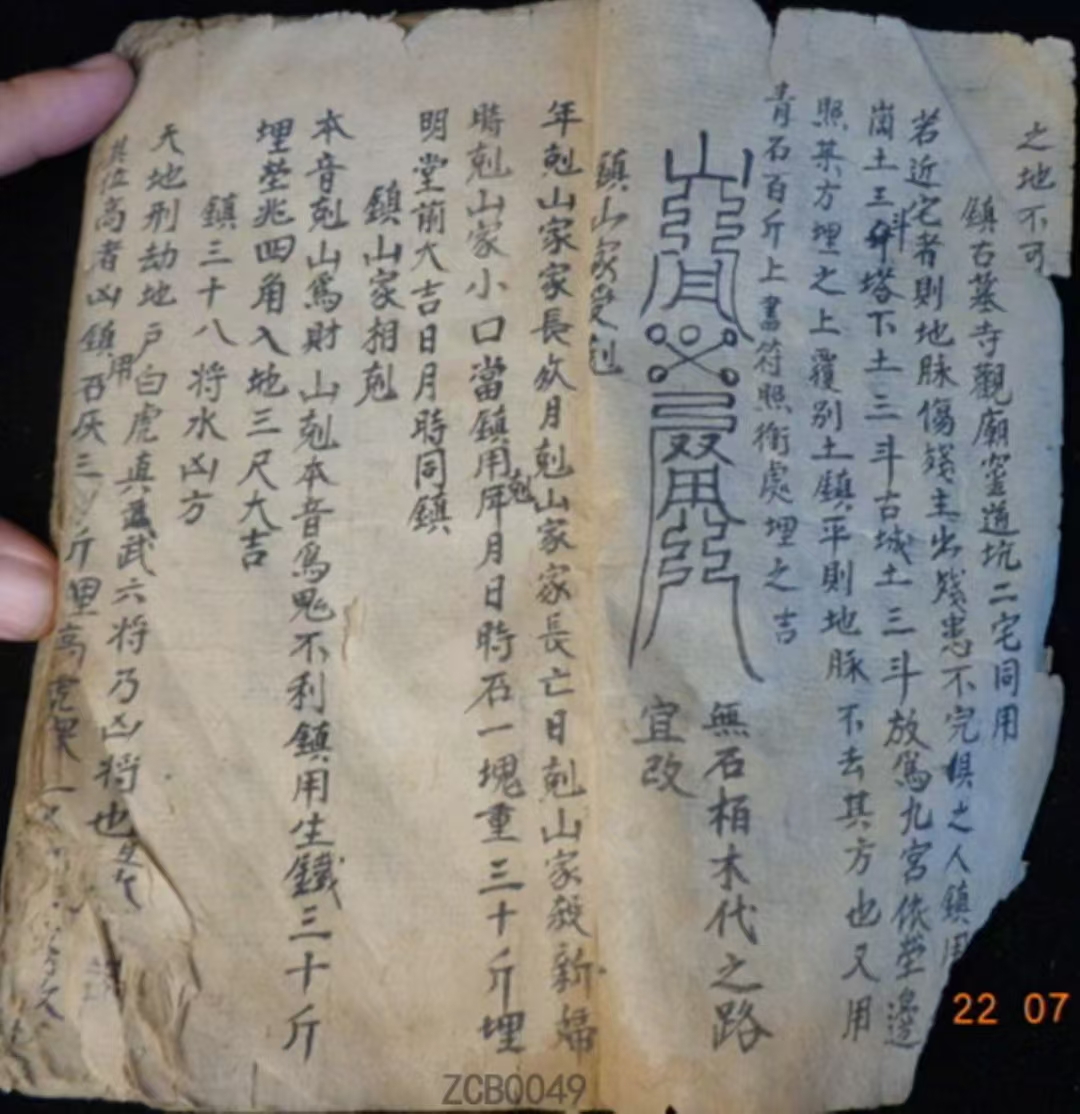 之地不可
鎮古墓寺觀廟窑道坑二宅同用
若近宅者則地脉傷殘主出殘患不完俱之人鎮用
崗土三斗塔下土三斗古城土三斗放爲九宮依塋邊
照某方埋之上覆別土鎮平則地脉不去其方也又用
青石百斤上書符照衝處埋之吉
無石栢木代之路
宜改
鎮山家受剋
年剋山家家長欻月剋山家家長亡日剋山家殺新婦
時剋山家小口當鎮用剋年月日時石一塊重三十斤埋
明堂前大吉日月時同鎮
鎮山家相剋
本音剋山爲財山剋本音爲鬼不利鎮用生鐵三十斤
埋塋兆四角入地三尺大吉
鎮三十八将水凶方
天地刑劫地户白虎真武六将乃凶将也
其位高者凶鎮用石灰三斤
22 07
ZCBQ049